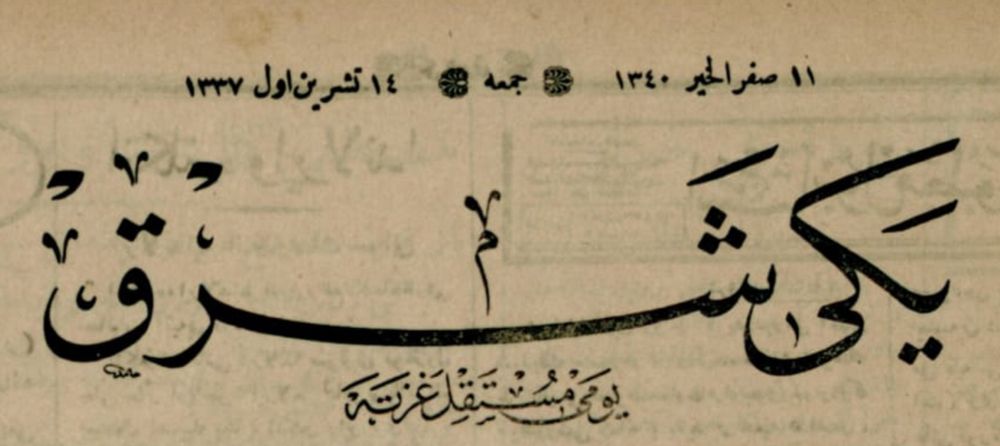 ١١ صفر الخير ١٣٤٠ جمعه ١٤ تشرين اول ١٣٣٧
يكى شرق
يومى مستقل غزته